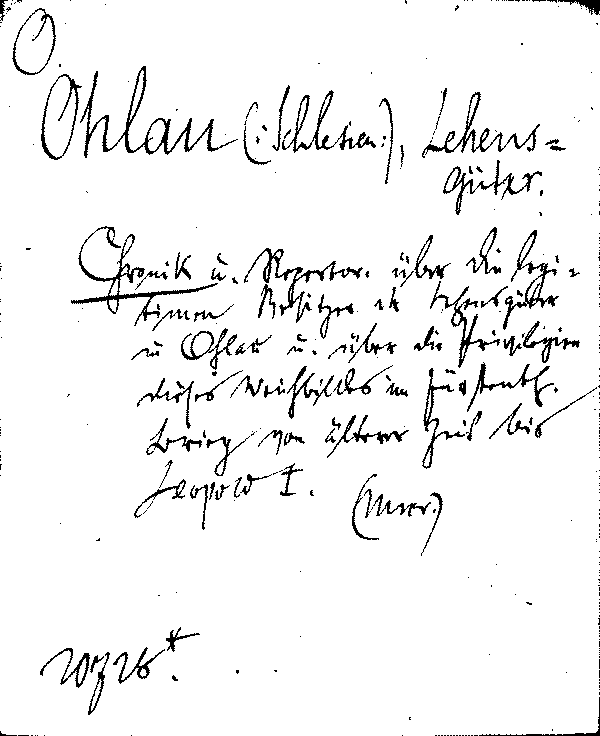 O.
Ohlau (: Schlesien :), Lehens=
güter.
Chronik u. Repertor. über die legi=
timen Besitzer der Lehensgüter
in Ohlau u. über die Privilegien
dieses Weichbildes im Fürstenth.
Brieg von älterer Zeit bis
Leopold I. (Mscr.)